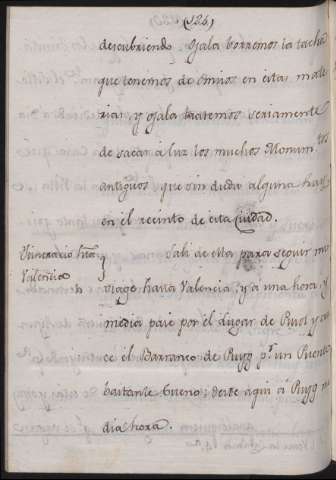 (126)
descubriendo. Ojala borremos la tacha
que tenemos de omisos en estas mate
rias, y ojala tratemos seriamente
de sacar à luz los muchos Monumtos
antiguos que sin duda alguna hay
en el recinto de esta Ciudad.
Itinerario hta Sali de ella para seguir mi
Valencia viage hasta Valencia; y a una hora y
media pase por el Lugar de Pusol y
ce el Barranco de Puyg pr. un Puente
bastante bueno; desde aqui à Puyg
dia hora.